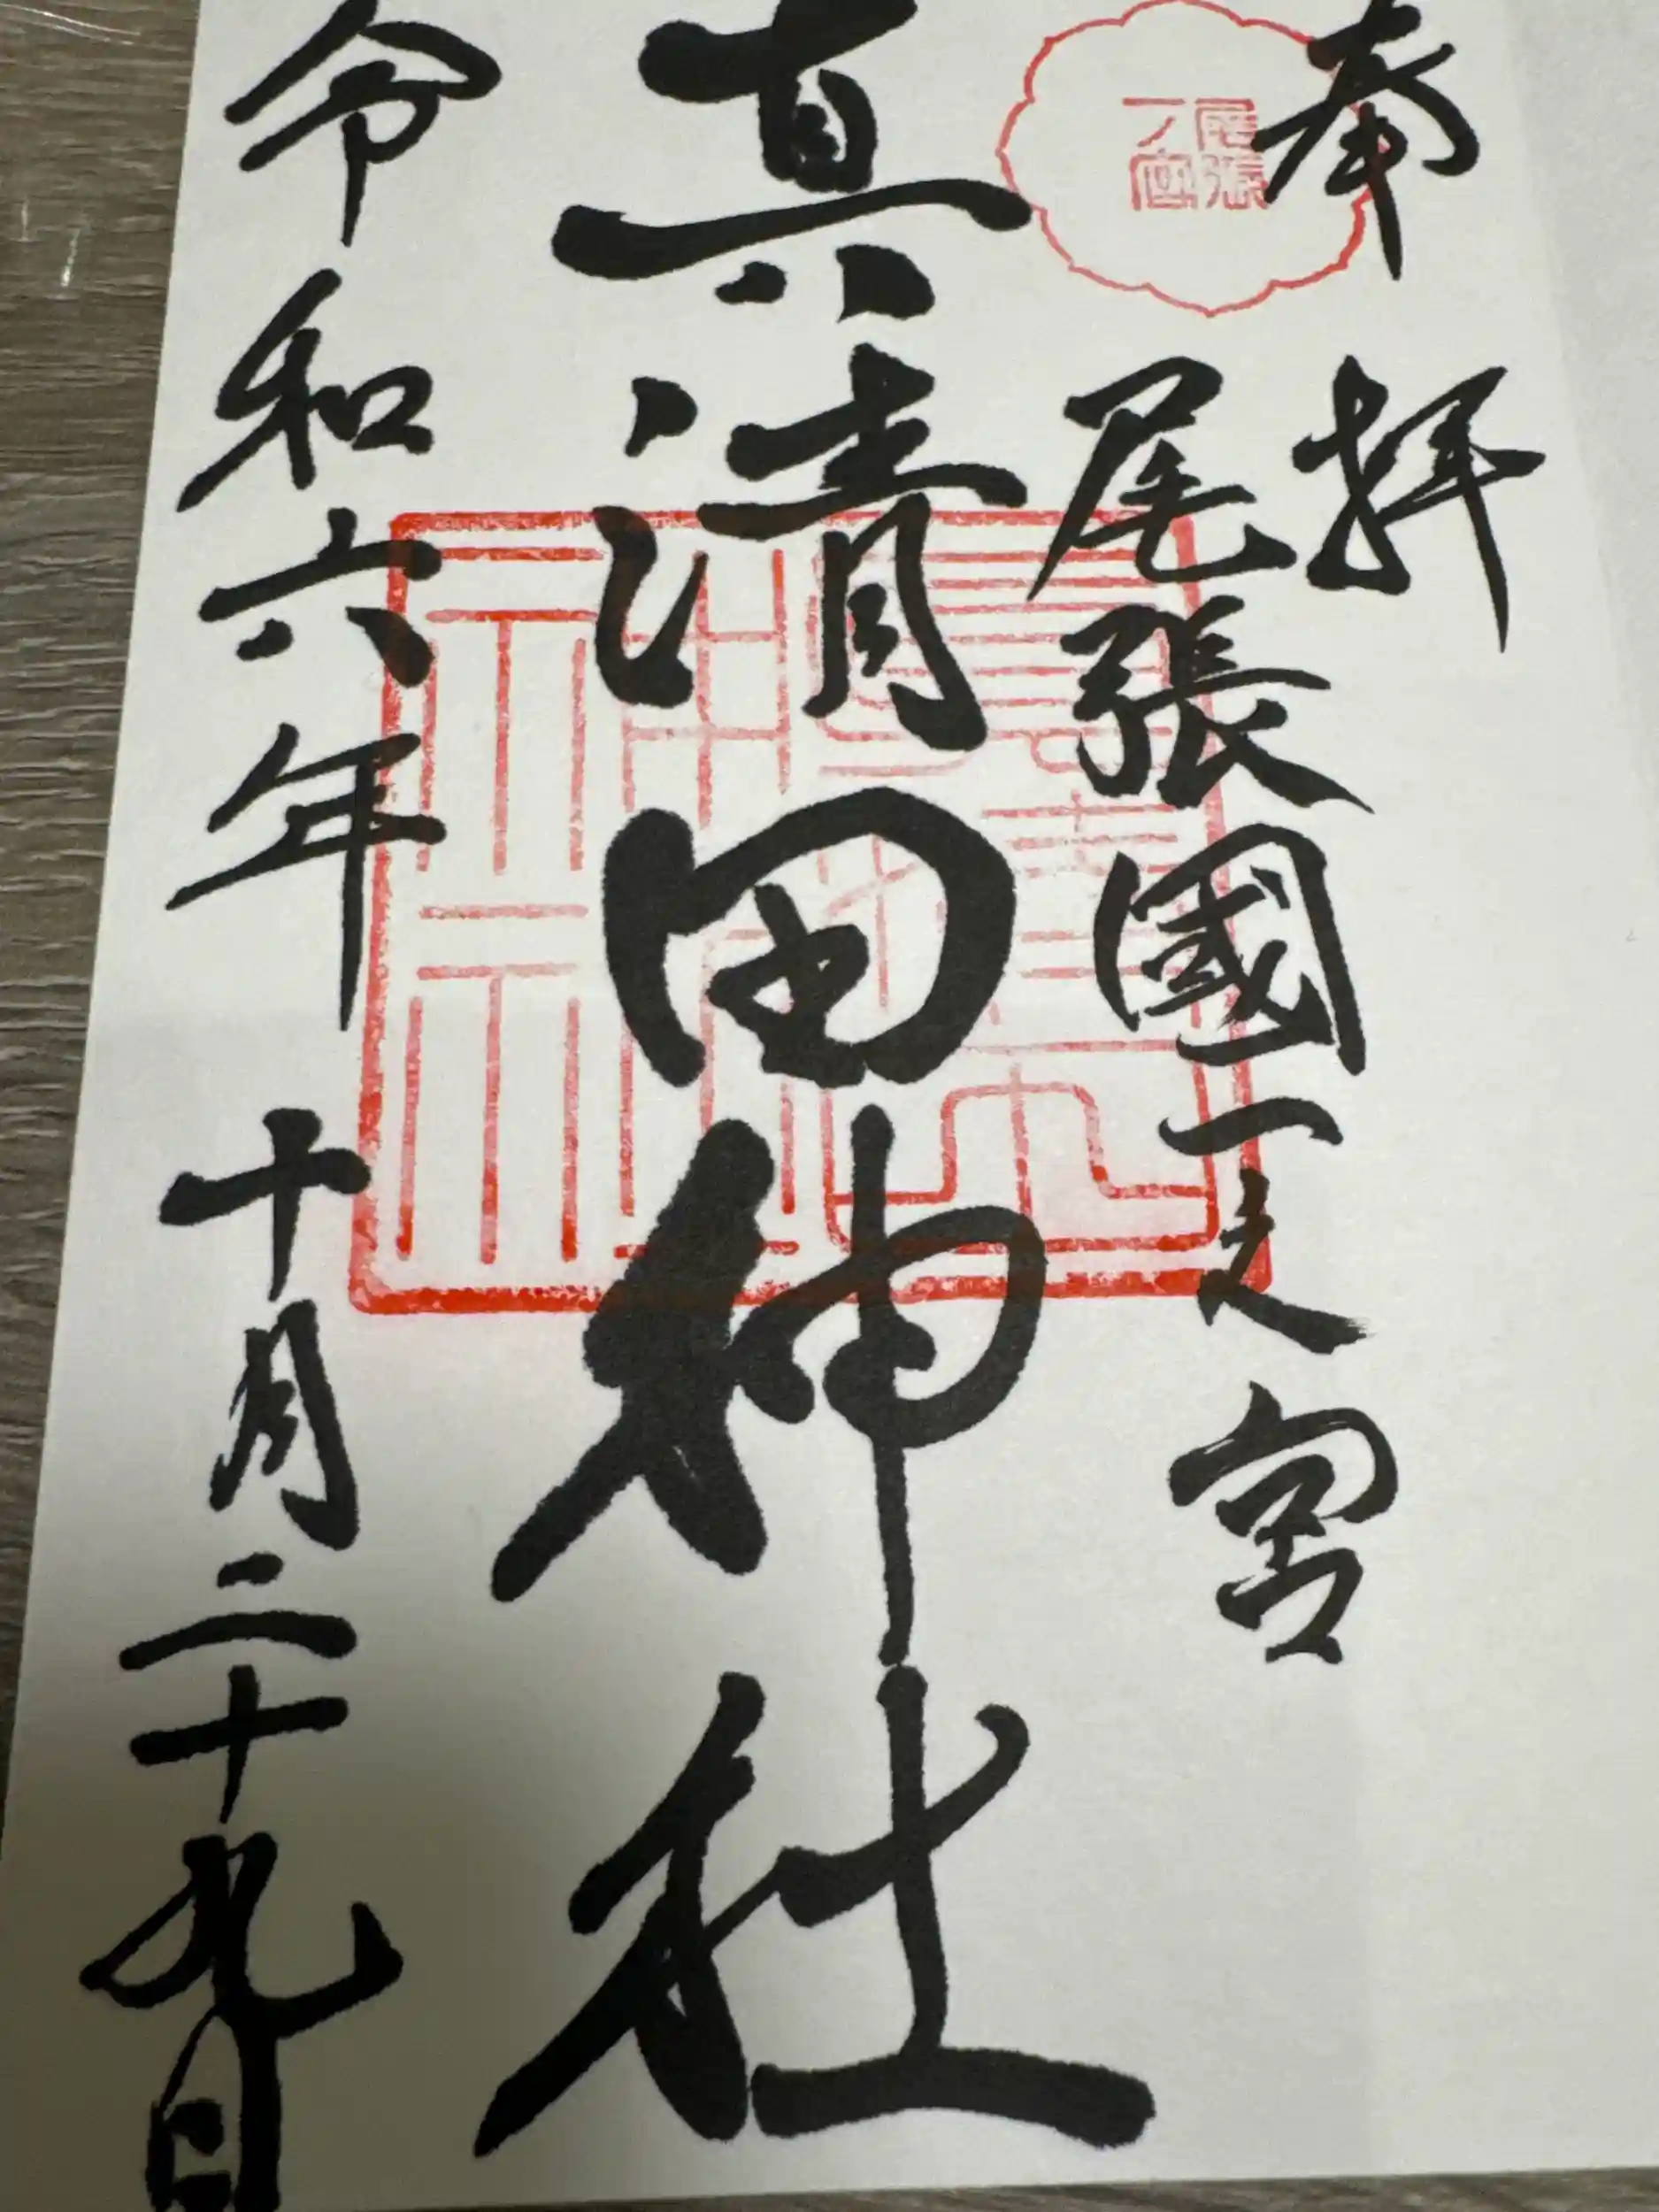 奉拝
尾張
一宮
尾張國一之宮
真清田神社
令和六年 十月二十九日